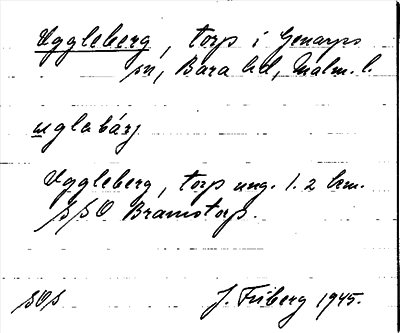 Uggleberg, torp i Genarps
sn, Bara hd, Malm. l.
uglabárj
Uggleberg, torp ung. 1.2 km.
SSO Bramstorp.
SOS J. Friberg 1945.